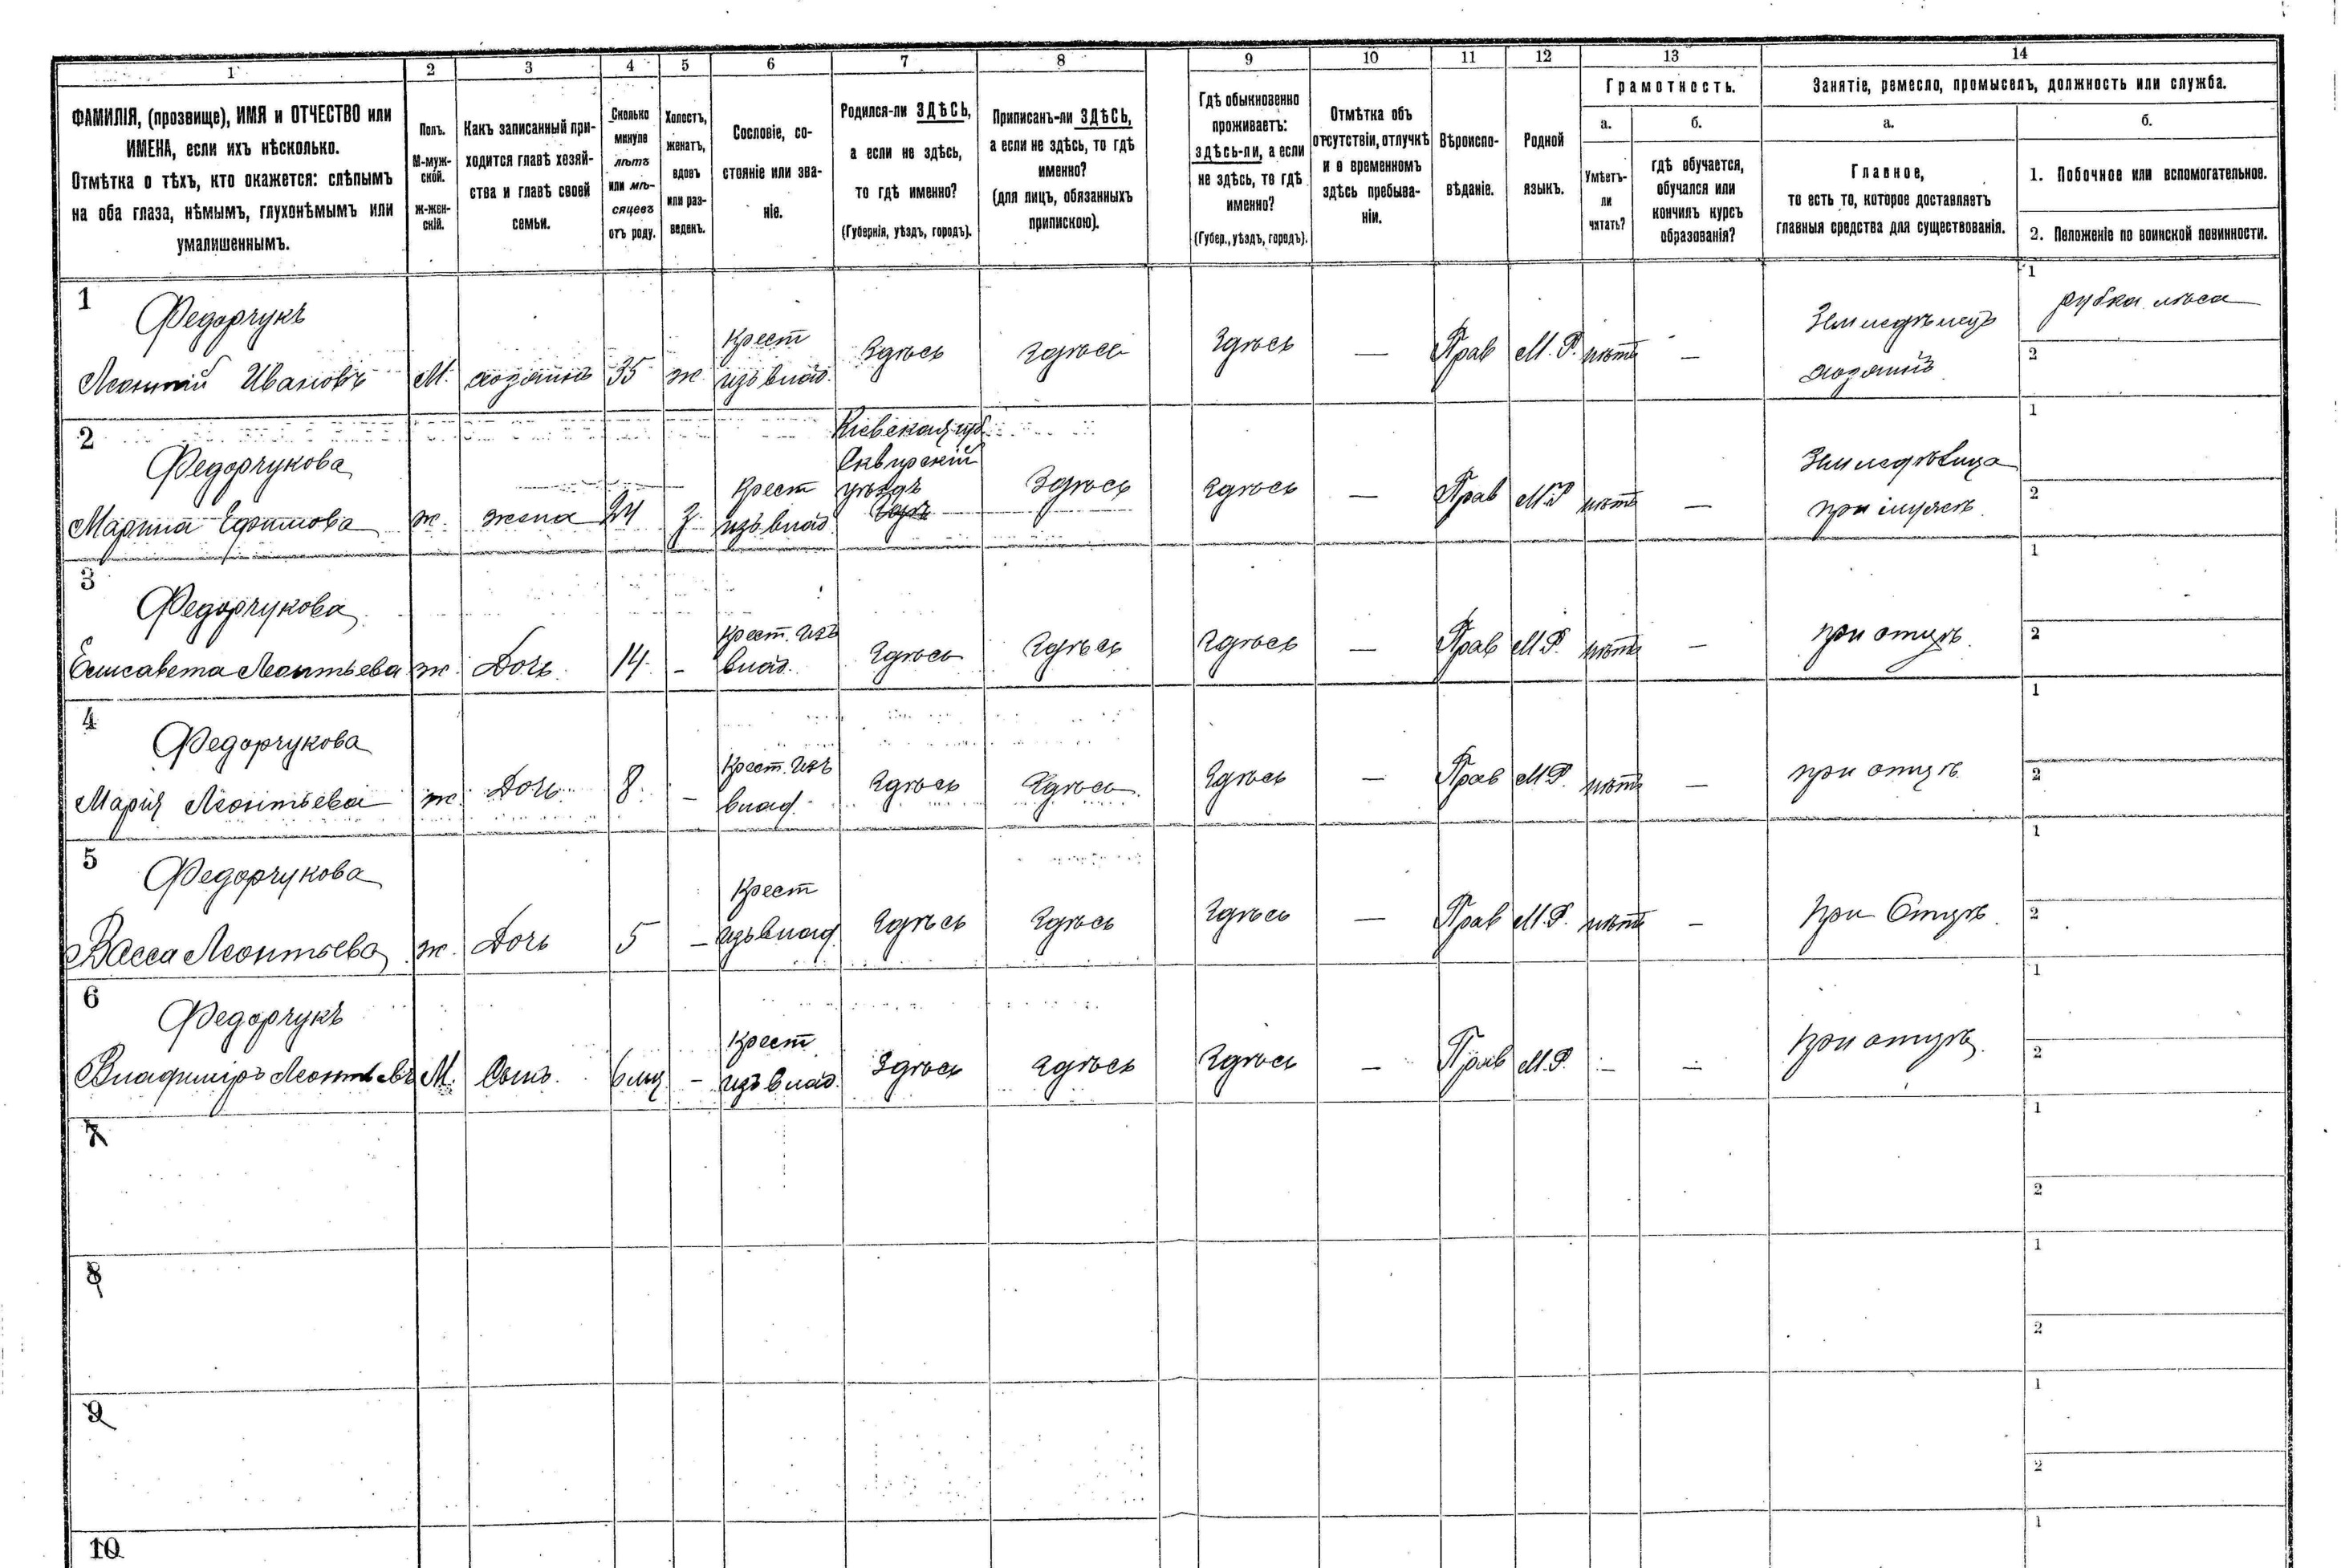 1 2 3 4 5 6 7 8 9 10 11 12 13 14
ФАМИЛІЯ, (прозвище), ИМЯ и ОТЧЕСТВО или
ИМЕНА, если ихъ нѣсколько.
Отмѣтка о тѣхъ, кто окажется: слѣпымъ
на оба глаза, нѣмымъ, глухонѣмымъ или
умалишеннымъ.
Полъ.
М-муж-
ской.
ж-жен-
скій.
Какъ записанный при-
ходится главѣ хозяй-
ства и главѣ своей
семьи.
Сколько
минуло
лѣтъ
или мѣ-
сяцевъ
отъ роду.
Холостъ,
женатъ,
вдовъ
или раз-
веденъ.
Сословіе, со-
стояніе или зва-
ніе.
Родился-ли ЗДѢСЬ,
а если не здѣсь,
то гдѣ именно?
(Губернія, уѣздъ, городъ).
Приписанъ-ли ЗДѢСЬ,
а если не здѣсь, то гдѣ
именно?
(для лицъ, обязанныхъ
припискою).
Гдѣ обыкновенно
проживаетъ:
здѣсь-ли, а если
не здѣсь, то гдѣ
именно?
(Губер., уѣздъ, городъ).
Отмѣтка объ
отсутствіи, отлучкѣ
и о временномъ
здѣсь пребыва-
ніи.
Вѣроиспо-
вѣданіе.
Родной
языкъ.
Грамотность.
а.
Умѣетъ-
ли
читать?
б.
гдѣ обучается,
обучался или
кончилъ курсъ
образованія?
Занятіе, ремесло, промыселъ, должность или служба.
а.
Главное,
то есть то, которое доставляетъ
главныя средства для существованія.
б.
1. Побочное или вспомогательное.
2. Положеніе по воинской повинности.
1
Федорчукъ
Леонтій Ивановъ
М.
хозяинъ
35
ж
Крест
изъ влад.
Здѣсь
Здѣсь
Здѣсь
—
Прав
М. Р.
нѣтъ
—
Земледѣлецъ
хозяинъ
1
рубка лѣса
2
2
Федорчукова
Марина Ефимова
ж.
жена
34
з
Крест
изъ влад
Кіевская губ
Сквирскій
уѣздъ
Здѣсь
Здѣсь
—
Прав
М.Р
нѣтъ
—
при мужѣ
1
2
3
Федорчукова
Елисавета Леонтьева
ж.
Дочь
14
-
Крест. изъ
влад.
Здѣсь
Здѣсь
Здѣсь
—
Прав
М.Р.
нѣтъ
—
при отцѣ.
1
2
4
Федорчукова
Марія Леонтьева
ж.
Дочь
8.
-
Крест. изъ
влад.
Здѣсь
Здѣсь
Здѣсь
—
Прав
М.Р.
нѣтъ
—
при отцѣ.
1
2
5
Федорчукова
Васса Леонтьева
ж.
Дочь
5
-
Крест
изъ влад.
Здѣсь
Здѣсь
Здѣсь
—
Прав
М.Р.
нѣтъ
—
при Отцѣ.
1
2
6
Федорчукъ
Владиміръ Леонтьевъ
М.
Сынъ.
6 мц
-
Крест
изъ влад.
Здѣсь
Здѣсь
Здѣсь
—
Прав
М.Р.
—
—
при отцѣ.
1
2
7
1
2
8
1
2
9
1
2
10
1